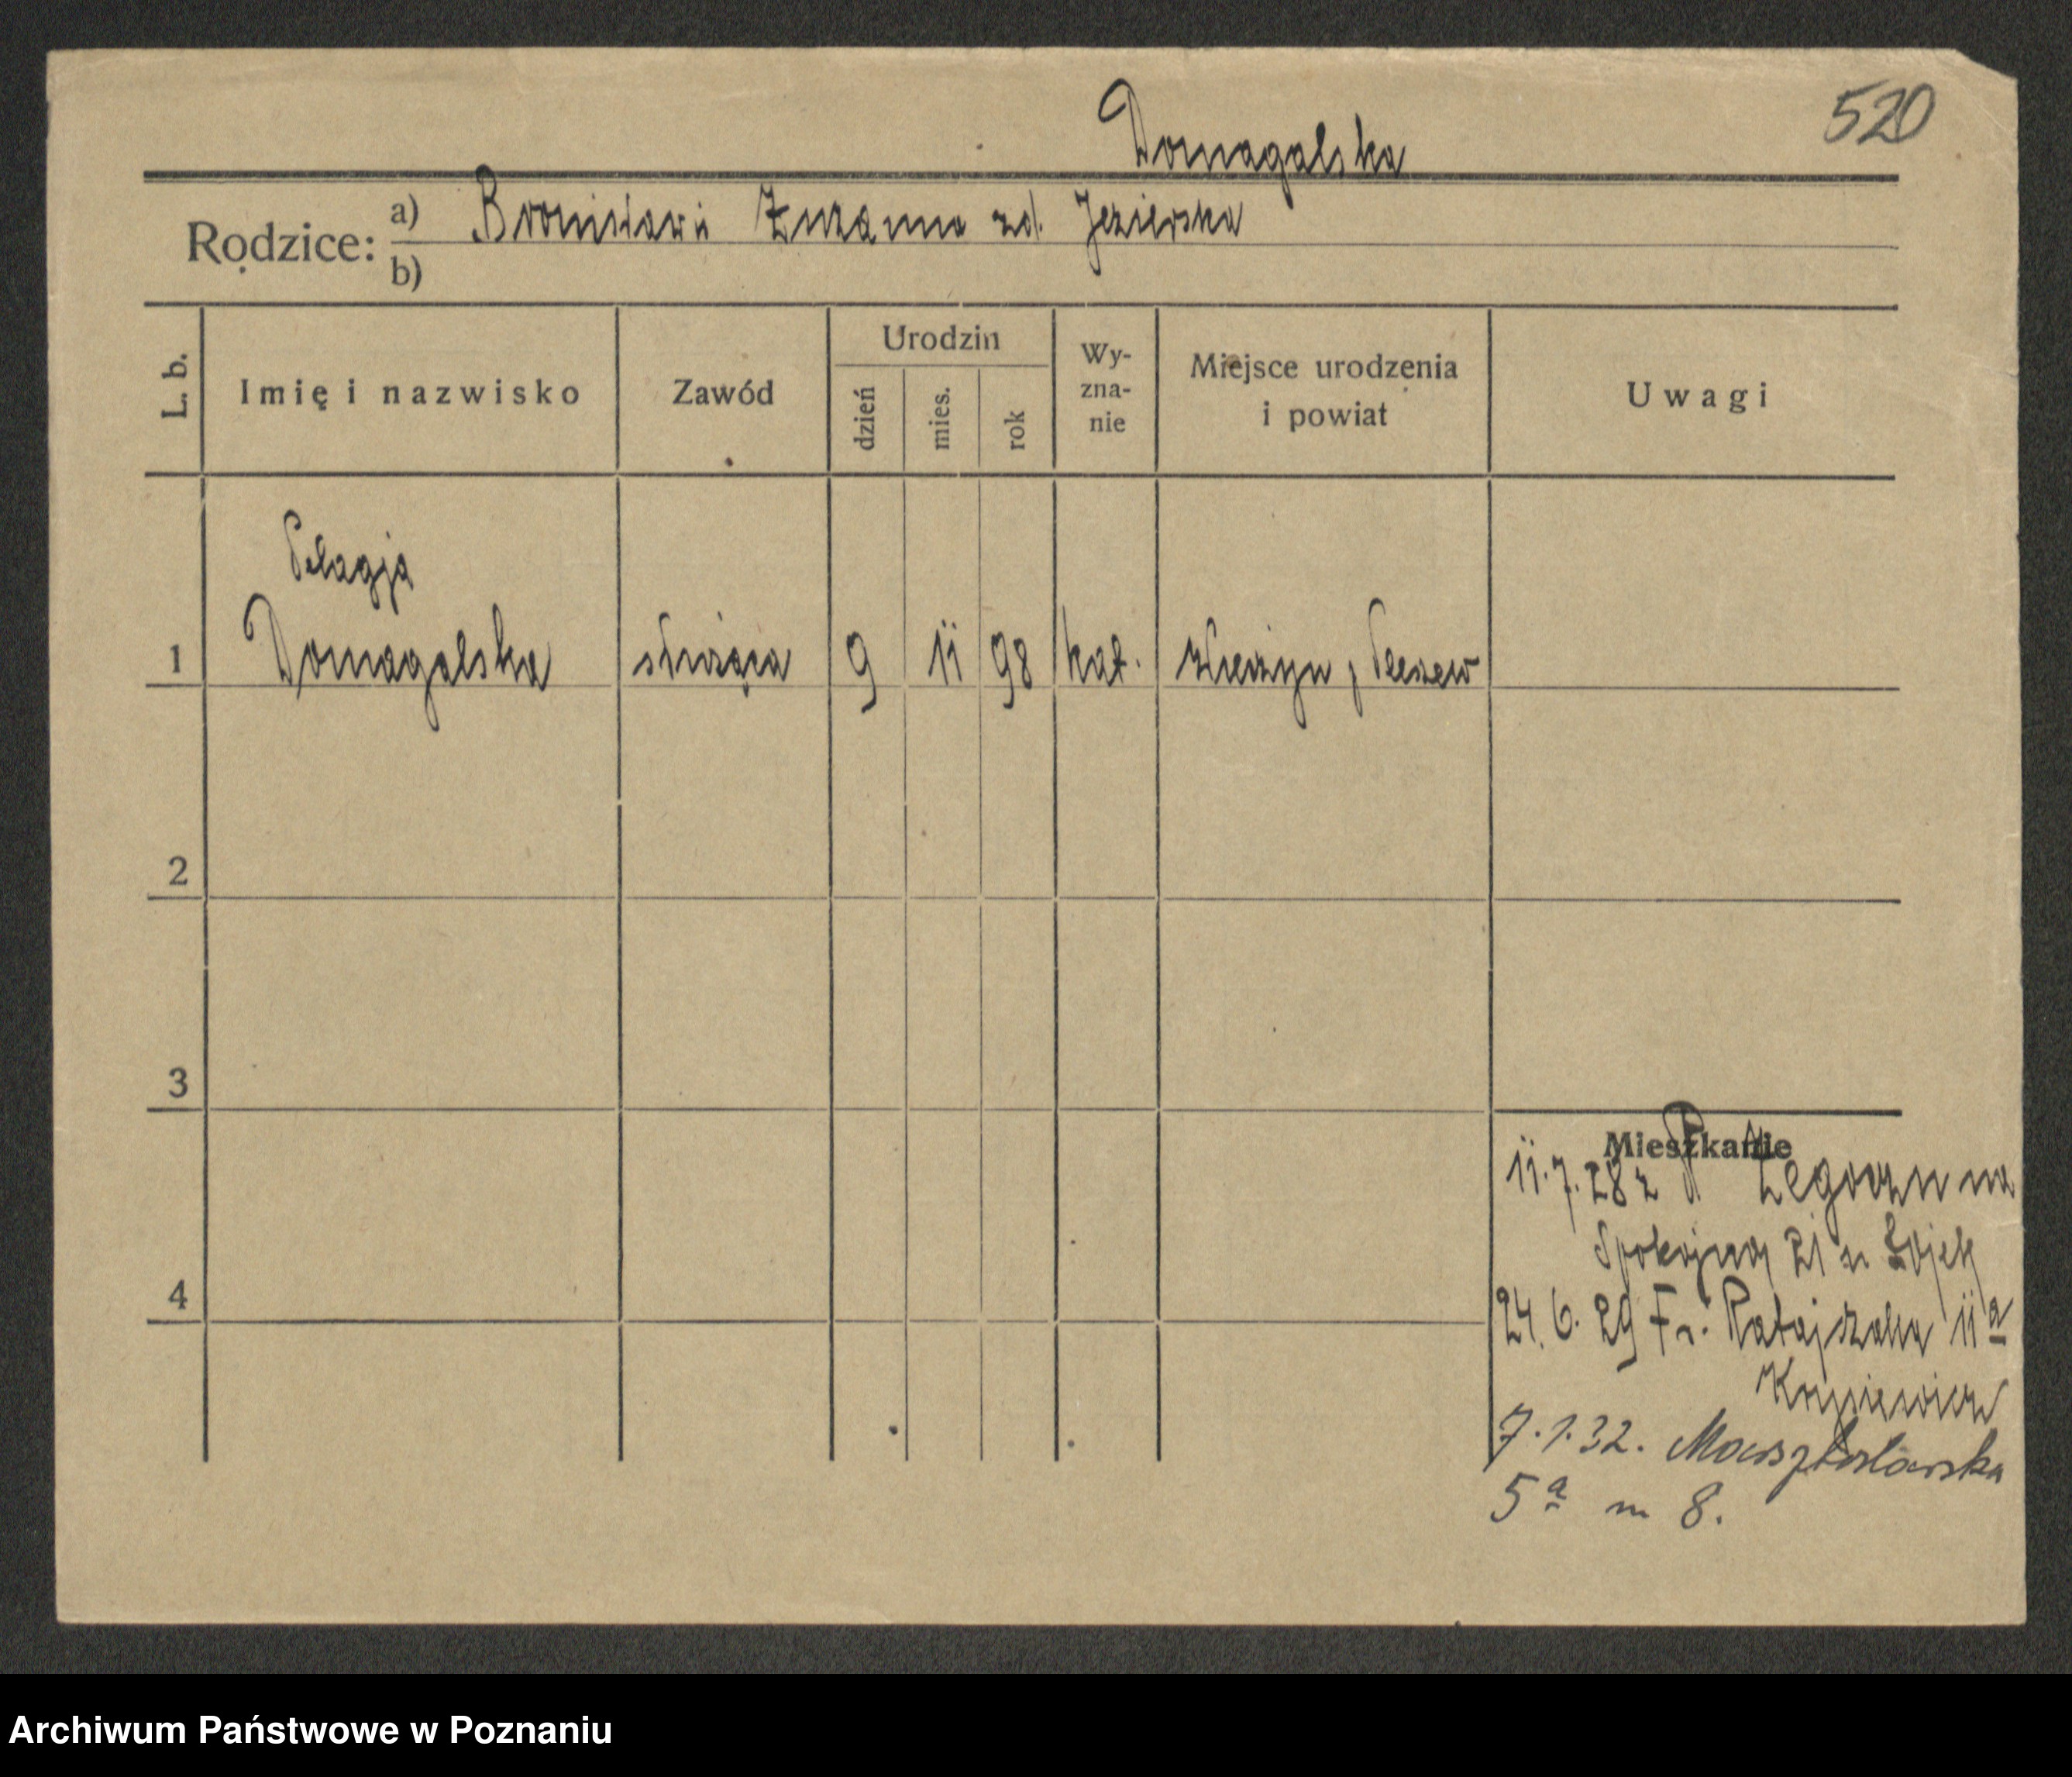 520
Domagalska
Rodzice: a) Bronisław i Zuzanna zd. Jezierska
b)
L. b. Imię i nazwisko Zawód Urodzin dzień mies. rok Wy-zna-nie Miejsce urodzenia i powiat Uwagi
Pelagja
1 Domagalska służąca 9 11 98 kat. Pleszew
2
3
Mieszkanie
11.7.28 z
Spokojna 21 u
4
24.6.29 Fr. Ratajczaka 11a
7.1.32. Masztalarska
5a m 8.
Archiwum Państwowe w Poznaniu